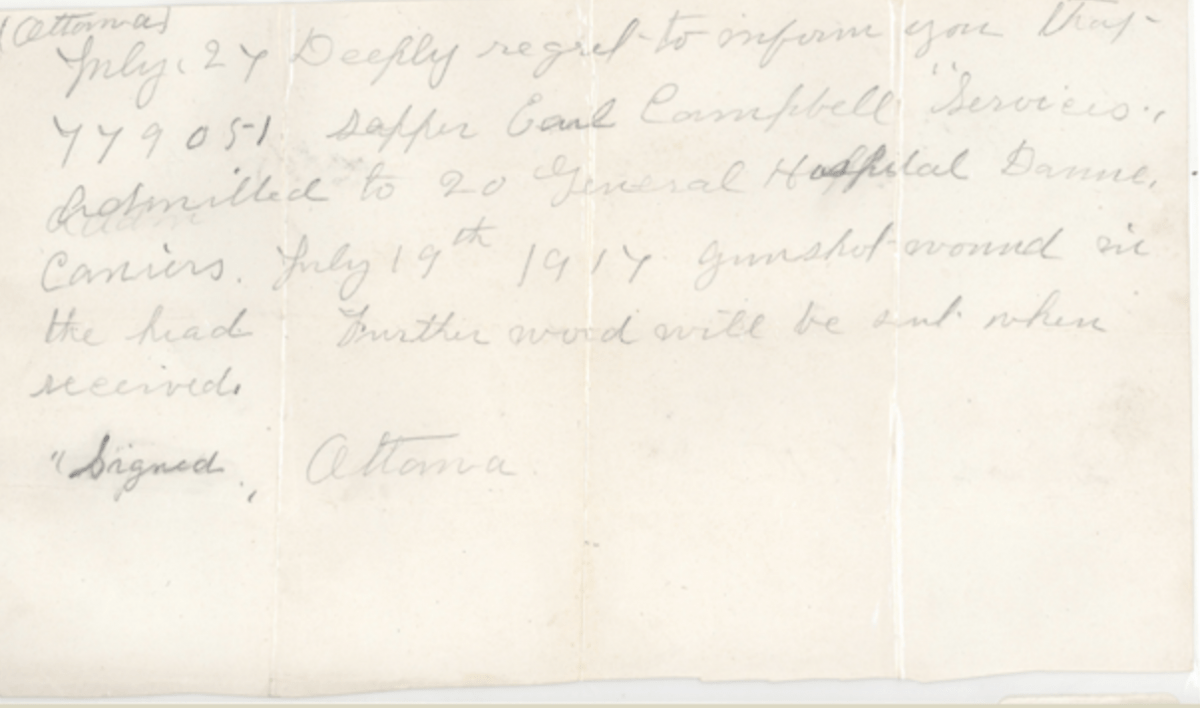 (Ottawa)
July, 27 Deeply regret to inform you that
779051 Sapper Earl Campbell "Services.,
Admitted to 20 General Hospital Danne,
Camiers. July 19th 1917 gunshot wound in
the head Further word will be sent when
received.
"Signed, Ottawa